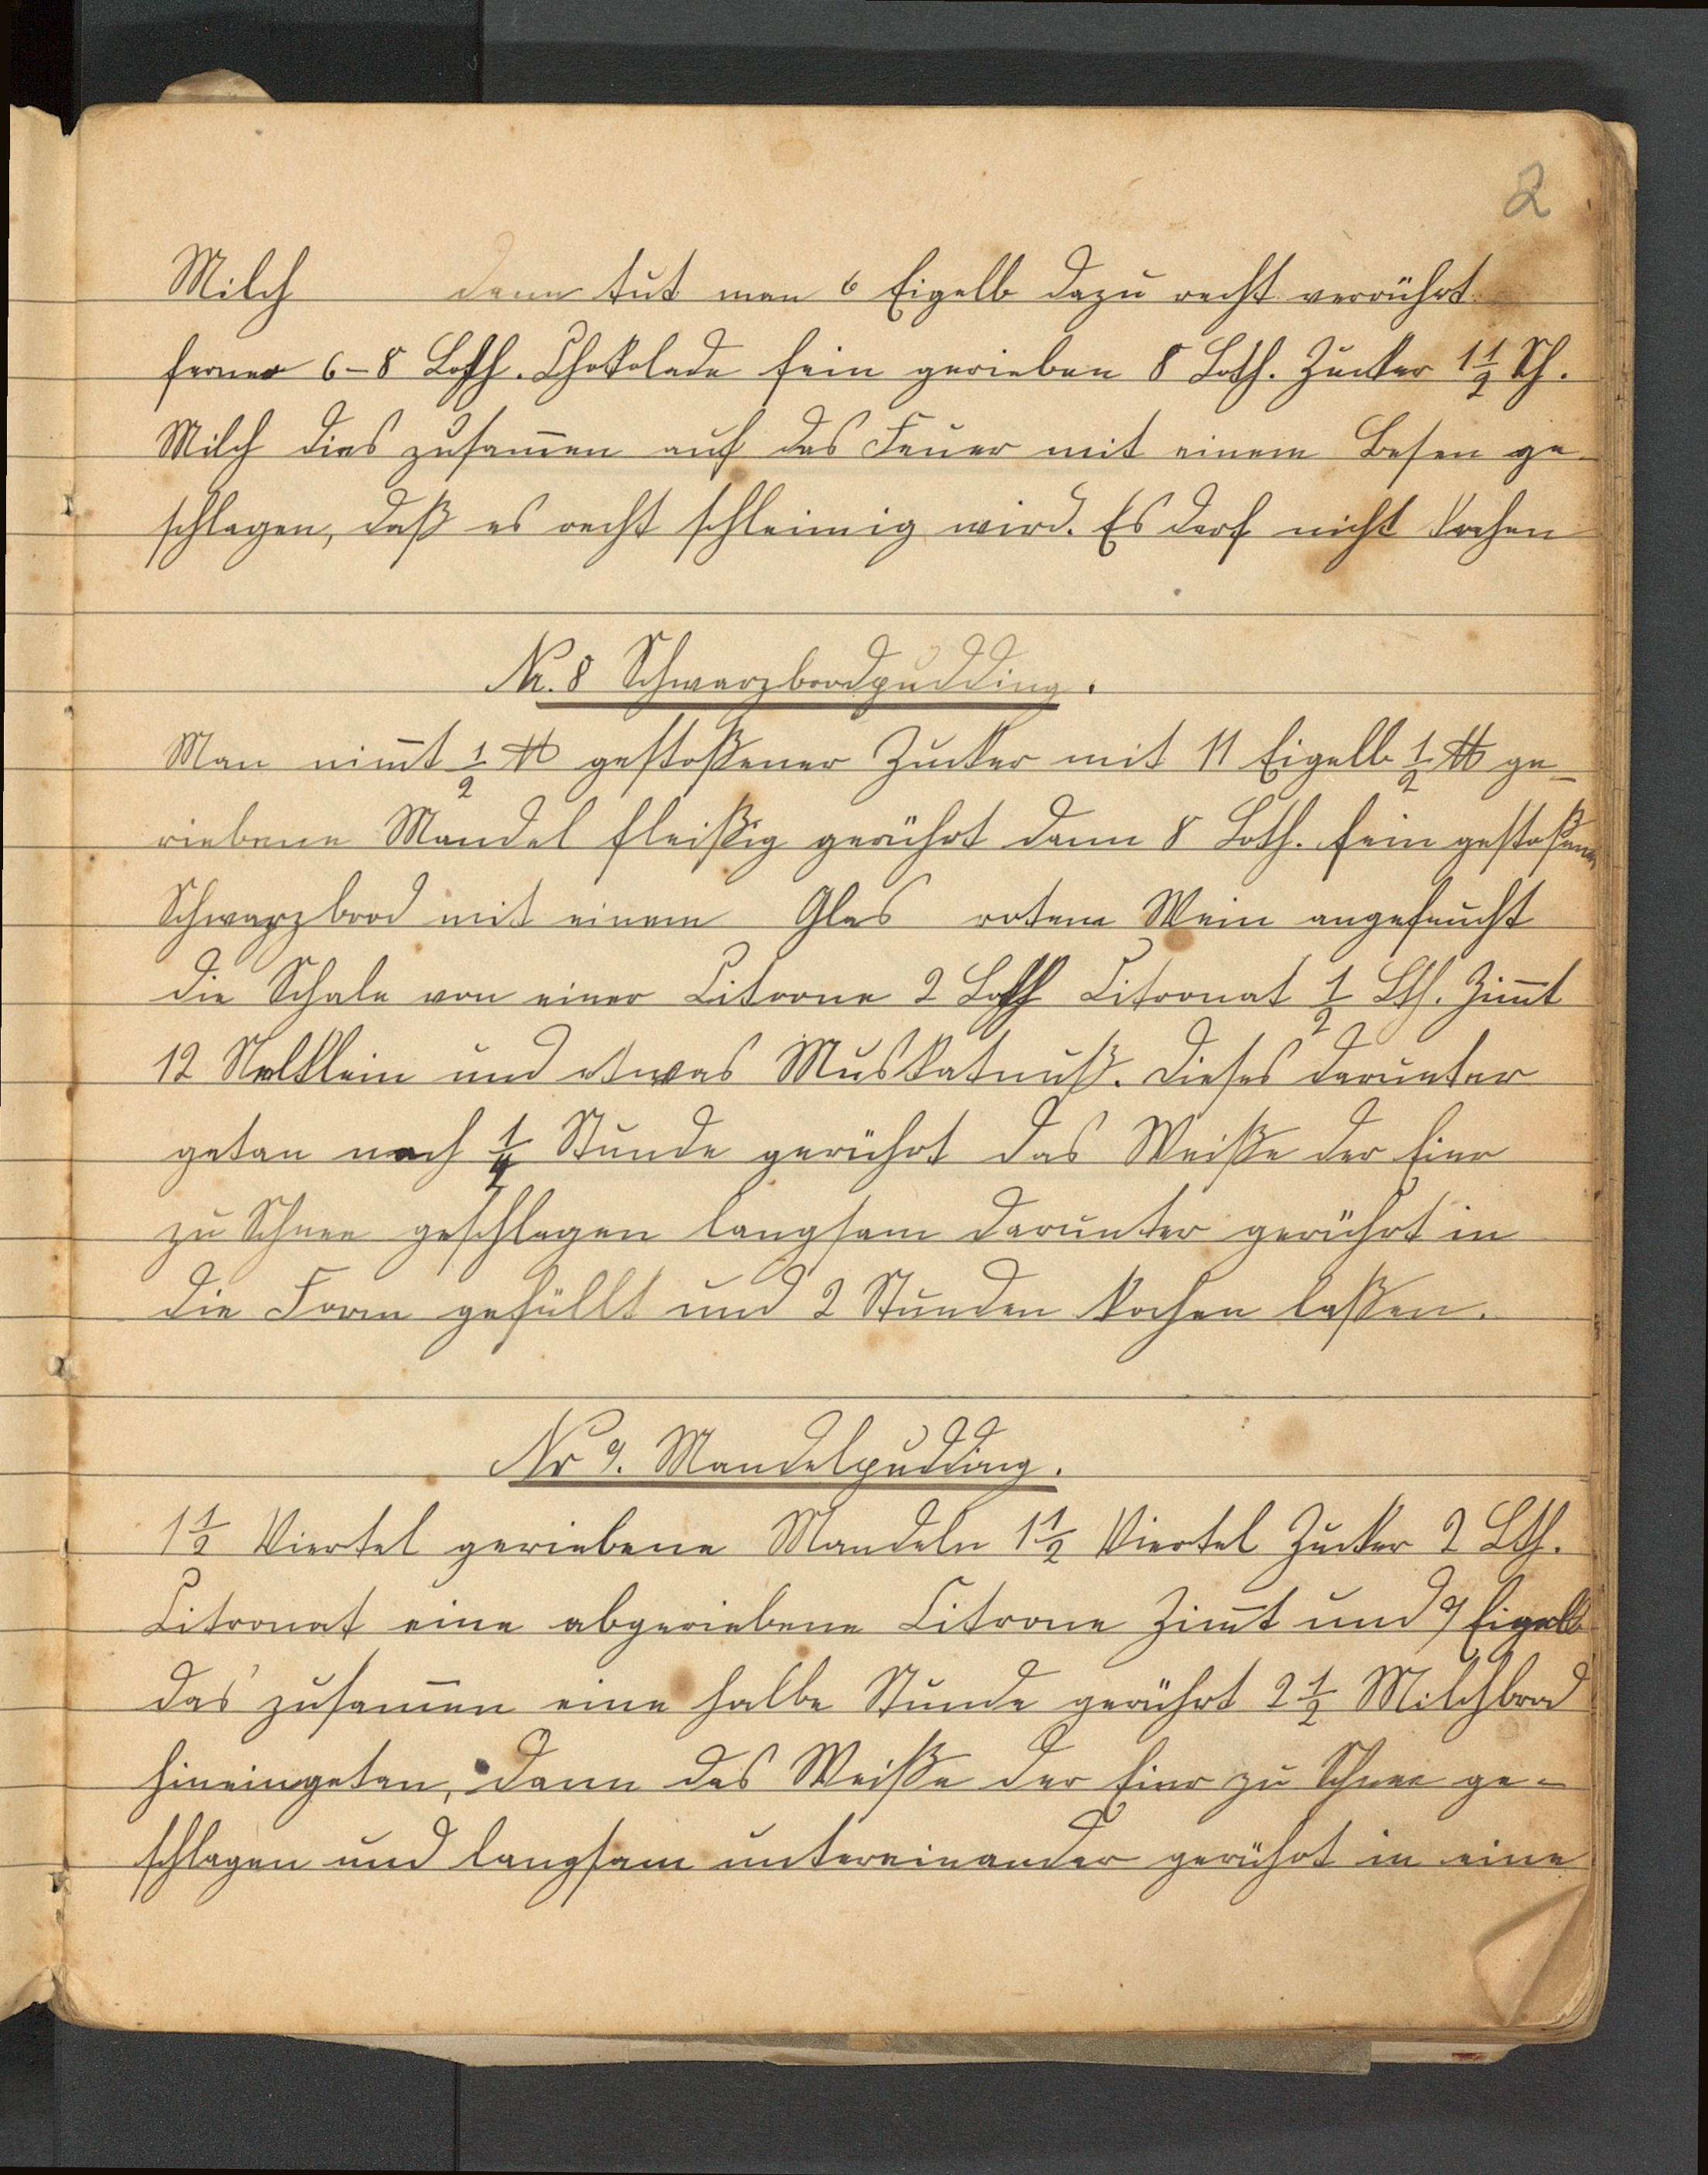 2
Milch dann tut man 6 Eigelb dazu recht verrührt
ferner 6-8 Loth. Chokolade fein gerieben 8 Loth. Zucker 1 1/2 Sch.
Milch dies zusam̅en auf das Feuer mit einem Besen ge-
schlagen, daß es recht schleimig wird. Es darf nicht kochen
Nr. 8 Schwarzbrodpudding.
Man nim̅t 1/2 ℔ gestoßener Zucker mit 11 Eigelb 1/2 ℔ ge-
riebene Mandel fleißig gerührt dann 8 Loth. fein gestoßenes
Schwarzbrod mit einem Glas rotem Wein angefeucht
die Schale von einer Citrone 2 Loth Citronat 1/2 Lth. Zim̅t
12 Nelklein und etwas Muskatnuß. Dieses darunter
getan noch 1/4 Stunde gerührt das Weiße der Eier
zu Schnee geschlagen langsam darunter gerührt in
die Form gefüllt und 2 Stunden kochen laßen.
Nr 9. Mandelpudding.
1 1/2 Viertel geriebene Mandeln 1 1/2 Viertel Zucker 2 Lth.
Citronat eine abgeriebene Citrone Zim̅t und 9 Eigelb
das zusam̅en eine halbe Stunde gerührt 2 1/2 Milchbrod
hineingetan, dann das Weiße der Eier zu Schnee ge-
schlagen und langsam untereinander gerührt in eine